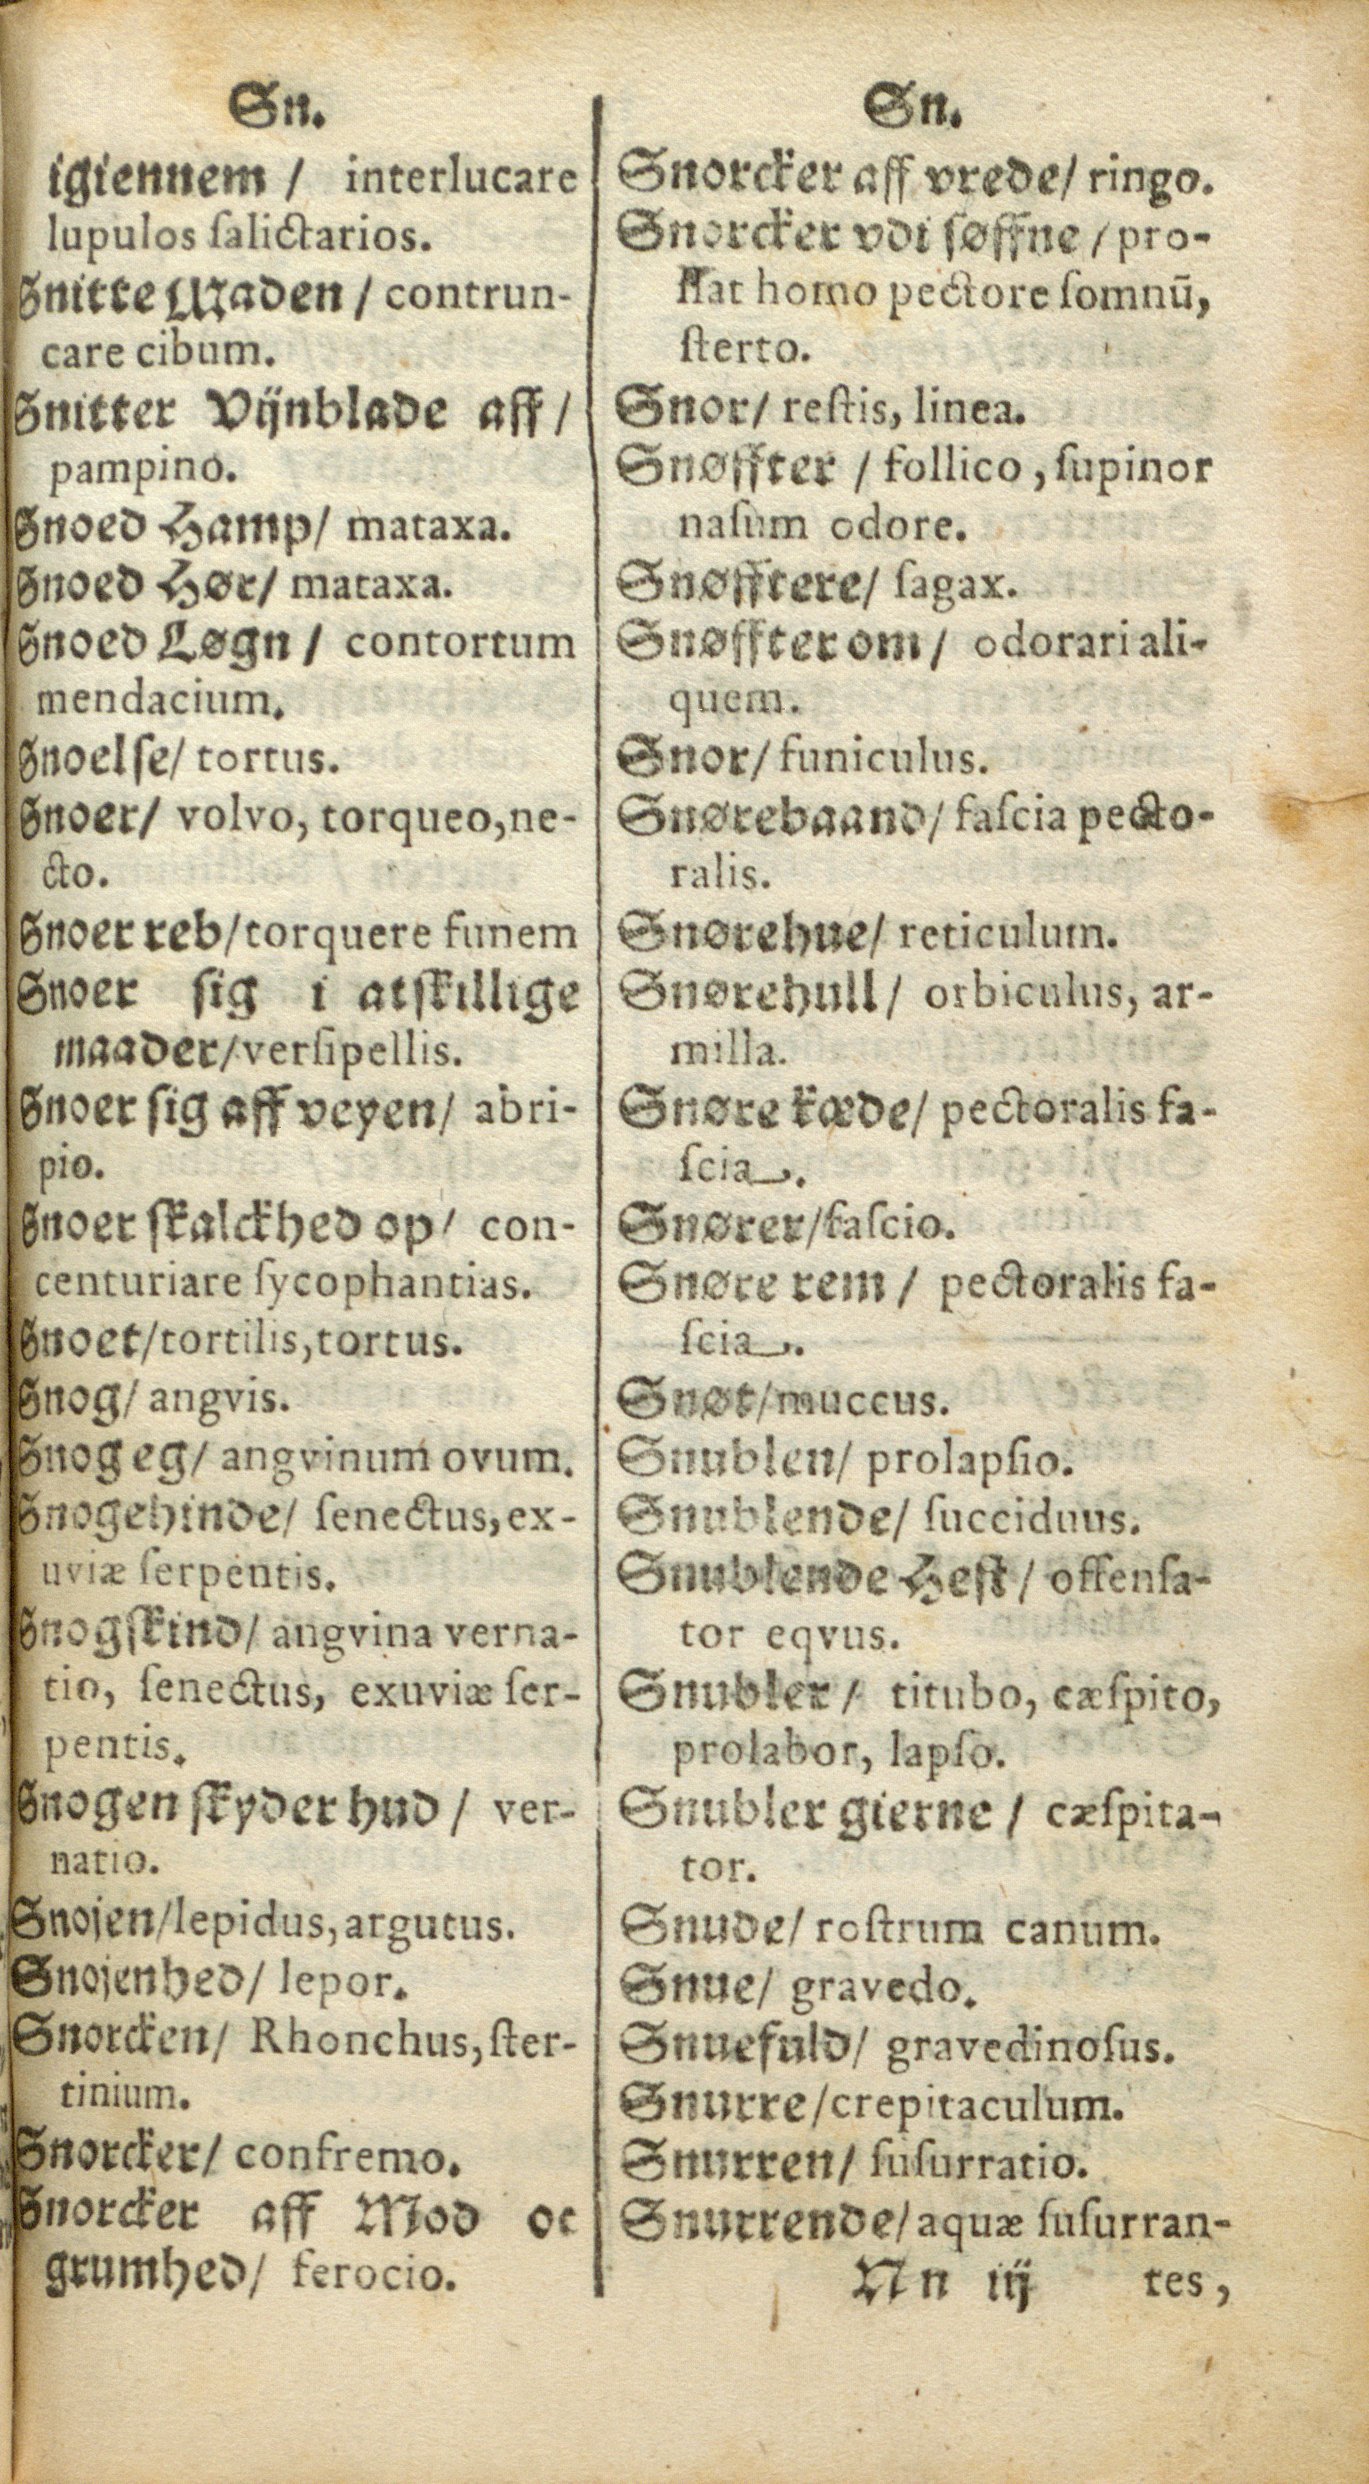 Sn.
igiennem / interlucare
lupulos ſalictarios.
Snitte Maden / contrun-
care cibum.
Snitter Vijnblade aff /
pampino.
Snoed Hamp/ mataxa.
Snoed Hør/ mataxa.
Snoed Løgn / contortum
mendacium.
Snoelſe/ tortus.
Snoer/ volvo, torqueo, ne-
cto.
Snoer reb/torquere funem
Snoer ſig i atſkillige
maader/verſipellis.
Snoer ſig aff veyen/ abri-
pio.
Snoer ſkalckhed op/ con-
centuriare ſycophantias.
Snoet/tortilis, tortus.
Snog/ angvis.
Snog eg/ angvinum ovum.
Snogehinde/ ſenectus, ex-
uviæ ſerpentis.
Snogſkind/ angvina verna-
tio, ſenectus, exuviæ ſer-
pentis.
Snogen ſkyder hud / ver-
natio.
Snojen/lepidus, argutus.
Snojenhed/ lepor.
Snorcken/ Rhonchus, ſter-
tinium.
Snorcker/ confremo.
Snorcker aff Mod oc
grumhed/ ferocio.
Sn.
Snorcker aff vrede/ ringo.
Snorcker vdi ſøffne / pro-
flat homo pectore ſomnū,
ſterto.
Snor/ reſtis, linea.
Snøffter / follico, ſupinor
naſum odore.
Snøfftere/ ſagax.
Snøffter om/ odorari ali-
quem.
Snor/ funiculus.
Snørebaand/ faſcia pecto-
ralis.
Snørehue/ reticulum.
Snørehull/ orbiculus, ar-
milla.
Snøre kæde/ pectoralis fa-
ſcia.
Snører/faſcio.
Snøre rem / pectoralis fa-
ſcia.
Snøt/muccus.
Snublen/ prolapſio.
Snublende/ ſucciduus.
Snublende Heſt/ offenſa-
tor eqvus.
Snubler/ titubo, cæſpito,
prolabor, lapſo.
Snubler gierne / cæſpita-
tor.
Snude/ roſtrum canum.
Snue/ gravedo.
Snuefuld/ gravedinoſus.
Snurre/crepitaculum.
Snurren/ ſuſurratio.
Snurrende/aquæ ſuſurran-
Nn iij tes,